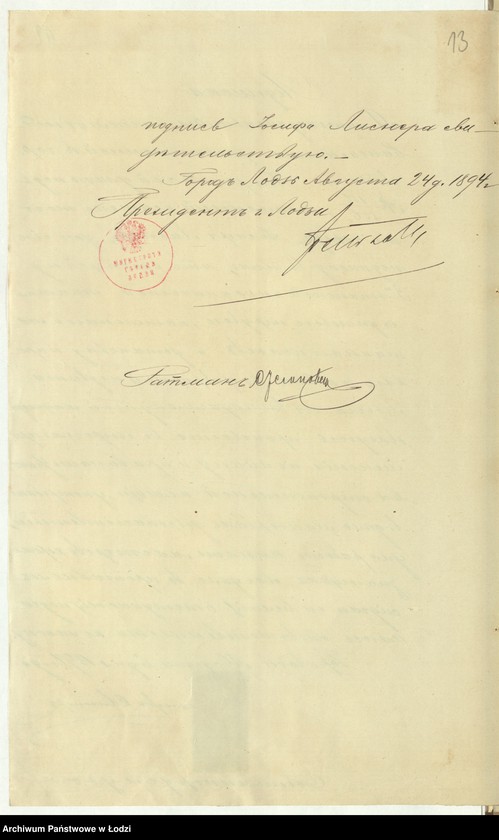 13
подпись Іосифа Лиснера сви-
дѣтельствую. —
Городъ Лодзь Августа 24 д. 1894 г
Президентъ г. Лодзи
МАГИСТРАТЪ
ГОРОДА
ЛОДЗИ
Ратманъ
Archiwum Państwowe w Łodzi